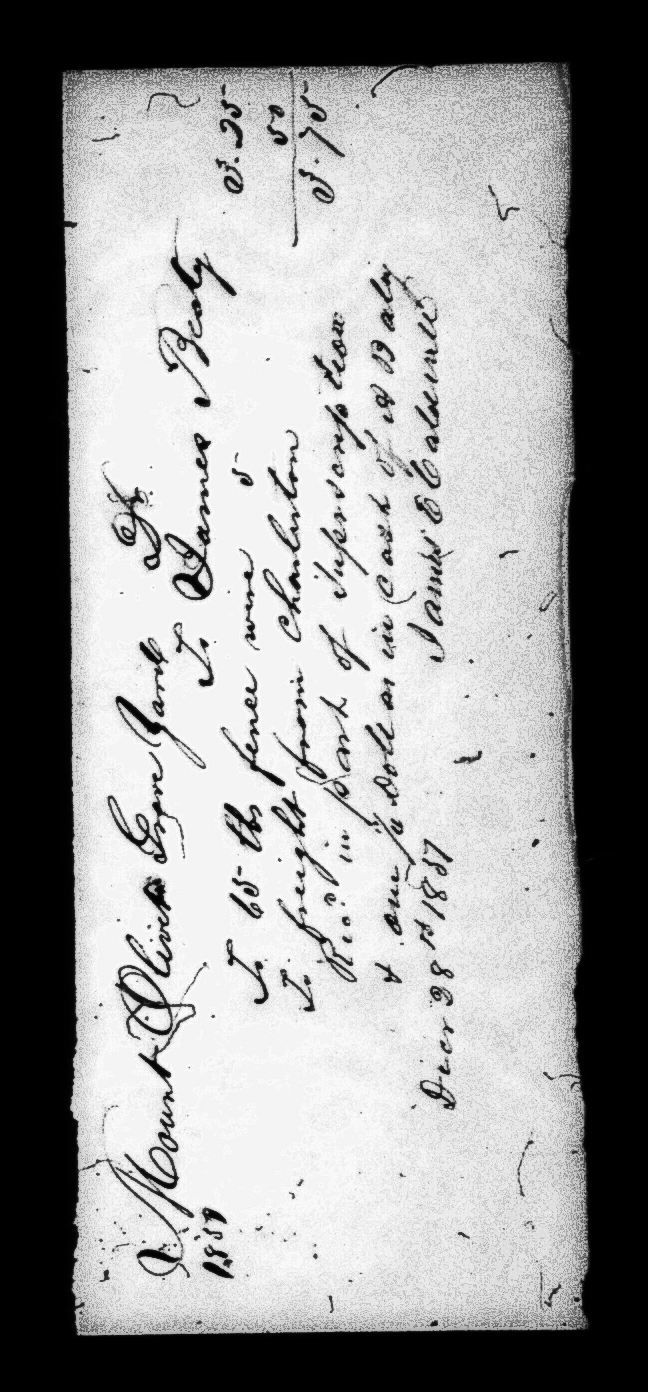 Mount Olivet Grave Yard Dr
1857 To James Beaty
To 65 lbs fence wire 5 3.25
To freight from Charleston 50
Recd in part of Superscription 3.75
& one Dollar in Cash of A B
Decr 28th 1857 James E Caldwell